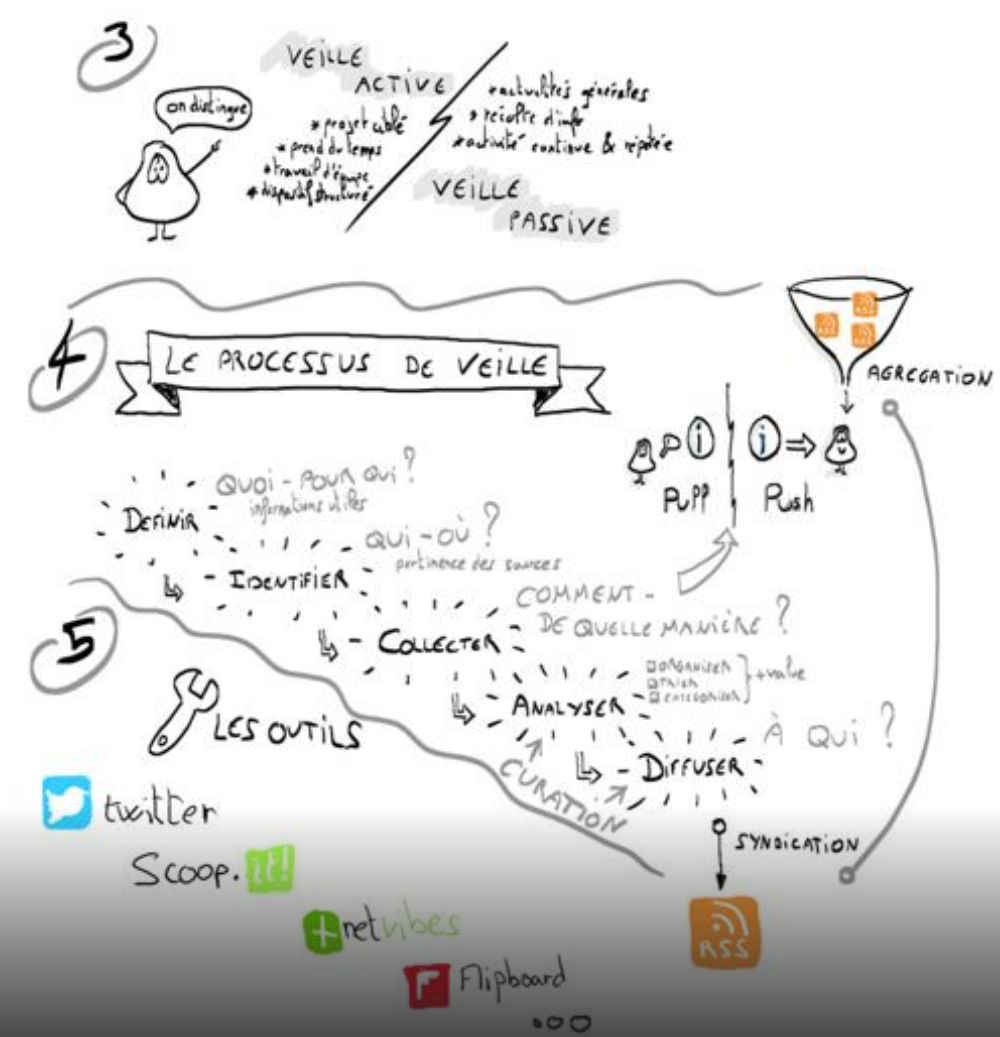 3
on distingue
VEILLE
ACTIVE
* projet ciblé
* prend du temps
* travail d'équipe
* dispositif structuré
* actualités générales
* récolte d'info
* activité continue & répétée
VEILLE
PASSIVE
4
LE PROCESSUS DE VEILLE
RSS
RSS
RSS
AGREGATION
i
i
Pull
Push
DEFINIR
QUOI - POUR QUI ?
informations utiles
IDENTIFIER
QUI - OÙ ?
pertinence des sources
COLLECTER
COMMENT -
DE QUELLE MANIÈRE ?
ANALYSER
ORGANISER
TRIER
CATEGORISER
+ value
DIFFUSER
À QUI ?
CURATION
SYNDICATION
RSS
5
LES OUTILS
twitter
Scoop.it!
netvibes
Flipboard